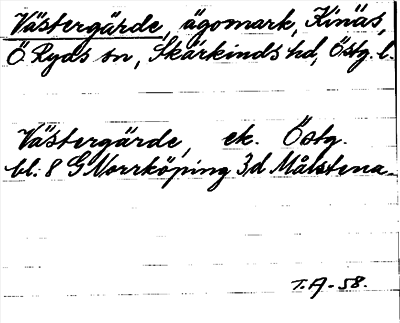 Västergärde, ägomark, Kinäs,
Ö Ryds sn, Skärkinds hd, Östg. l.
Västergärde, ek. Östg.
bl: 8 G Norrköping 3d Målstena
T.A-58.